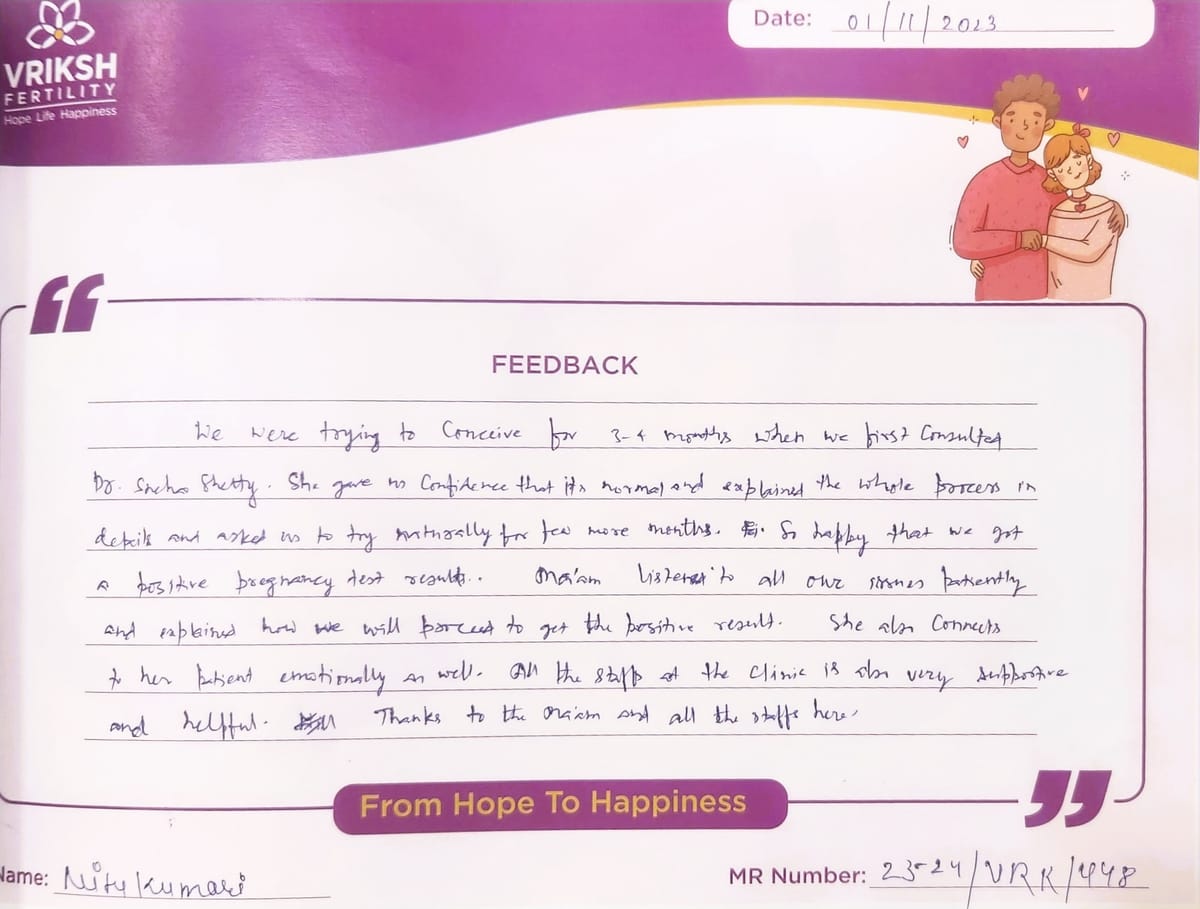 VRIKSH
FERTILITY
Hope Life Happiness
Date: 01/11/2023
FEEDBACK
We were trying to Conceive for 3-4 months when we first Consulted
Dr. Sneha Shetty. She gave us Confidence that its normal and explained the whole process in
details and asked us to try naturally for few more months. So happy that we got
a positive pregnancy test results.. Ma'am listened to all our issues patiently
and explained how we will proceed to get the positive result. She also Connects
to her patient emotionally as well. All the staffs at the clinic is also very supportive
and helpful. Thanks to the ma'am and all the staffs here.
From Hope To Happiness
Name: Nitu Kumari
MR Number: 23-24/VRK/448